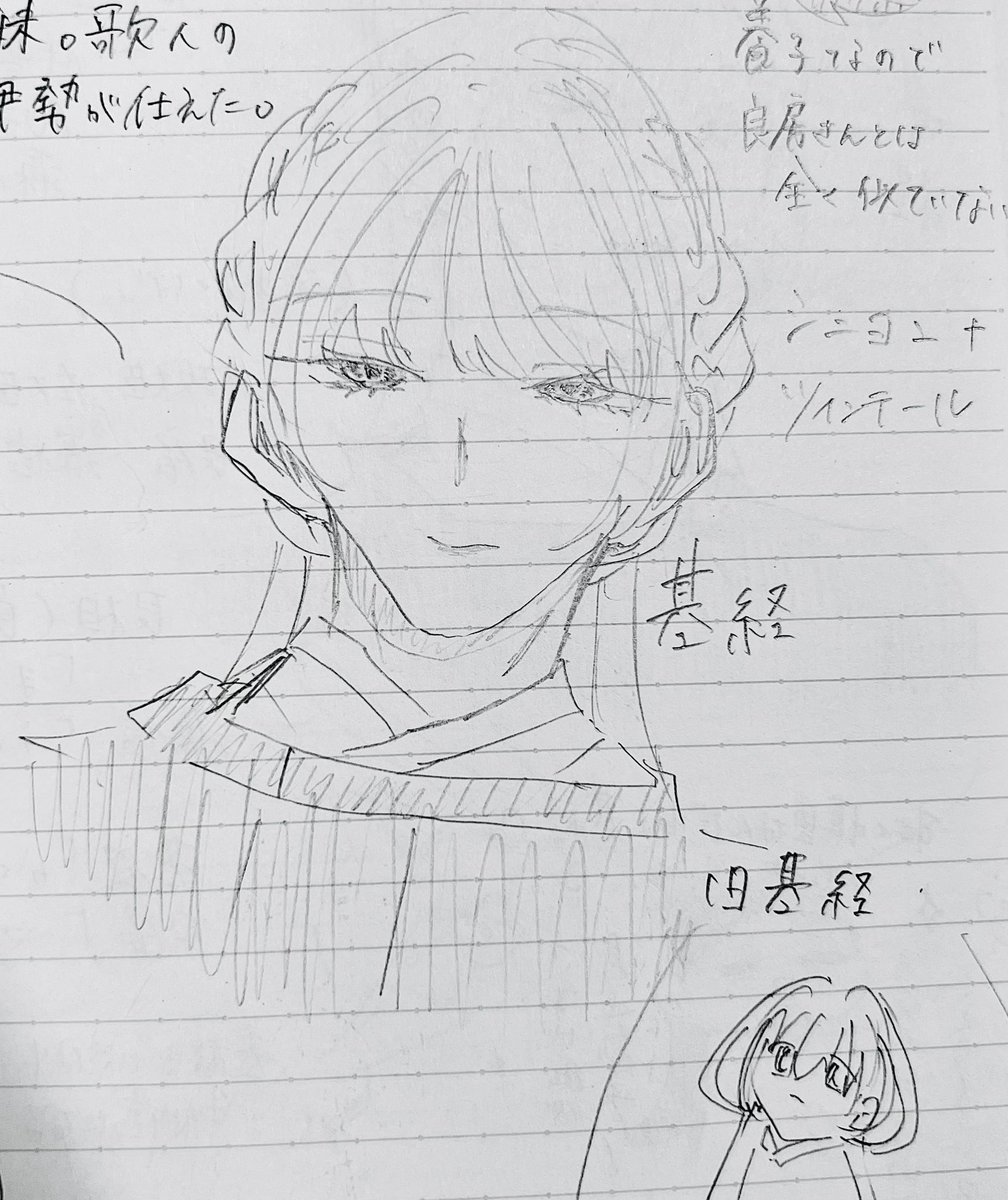 妹。歌人の
伊勢が仕えた。
養子なので
良房さんとは
全く似ていない
ツインテール
基経
旧基経